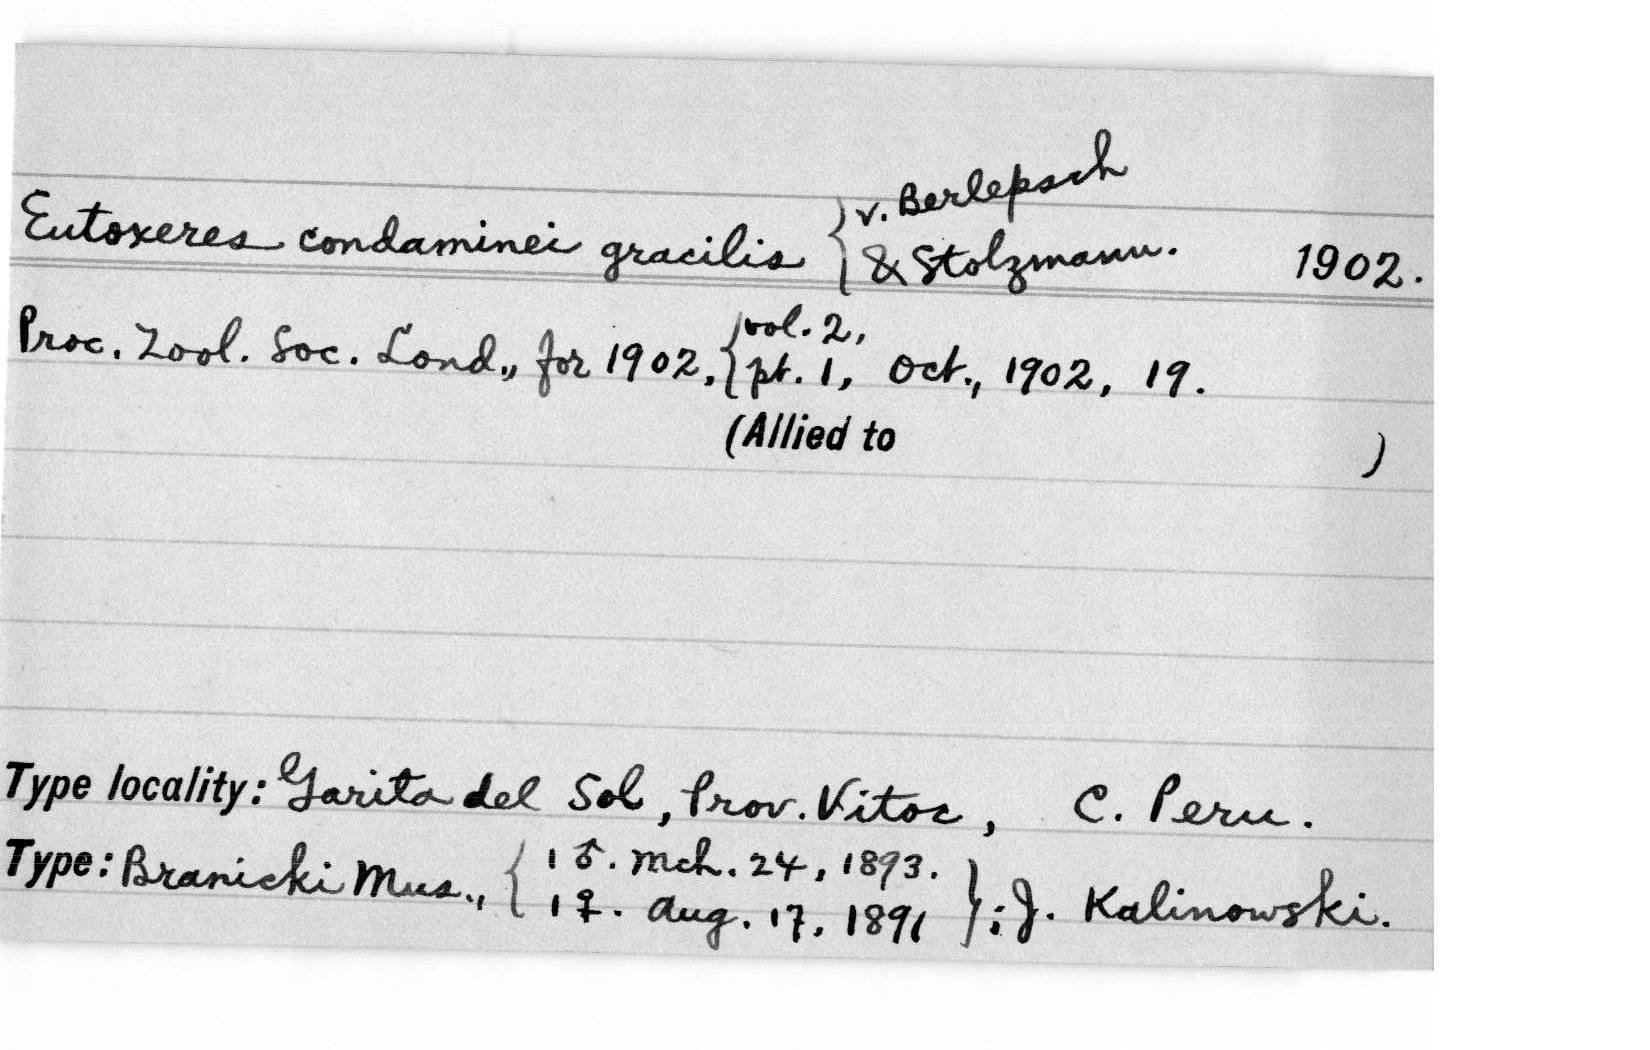 Eutoxeres condaminei gracilis { v. Berlepsch
& Stolzmann. 1902.
Proc. Zool. Soc. Lond., for 1902, { vol. 2,
pt. 1, Oct., 1902, 19.
(Allied to )
Type locality: Garita del Sol, Prov. Vitoc, C. Peru.
Type: Branicki Mus., { 1 ♂. Mch. 24, 1893.
1 ♀. Aug. 17, 1891 } ; J. Kalinowski.